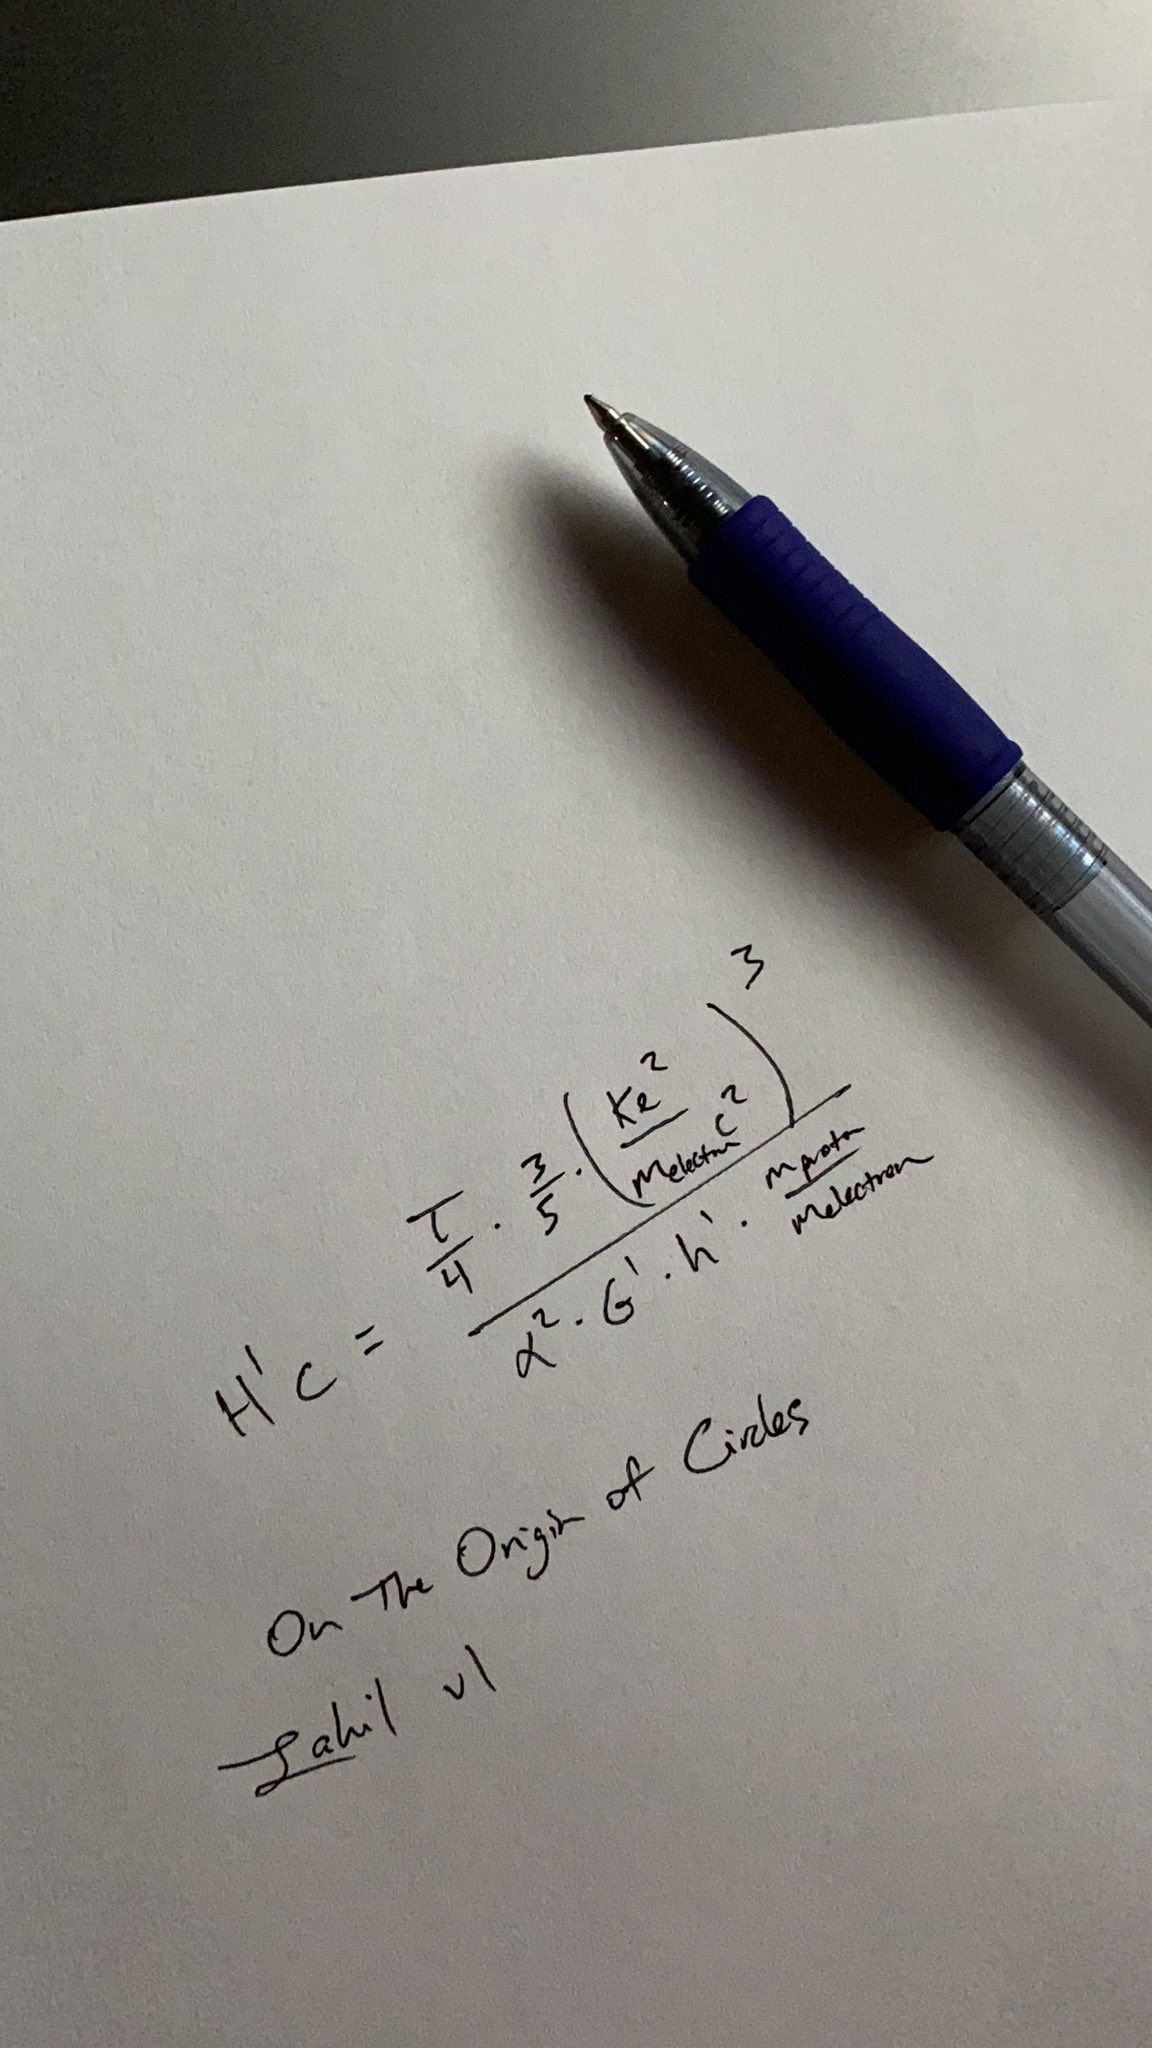 H'c = τ/4 · 3/5 · (ke²/Melectron c²)³ / α² · G' · h' · mproton/melectron
On The Origin of Circles
Sahil v1